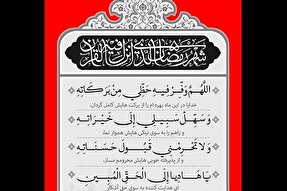 شهر رمضان الذی انزل فیه القرآن
اللَّهُمَّ وَفِّرْ فِيهِ حَظِّي مِنْ بَرَكَاتِهِ
خدایا در این ماه بهره ام را از برکت هایش کامل گردان،
وَ سَهِّلْ سَبِيلِي إِلَى خَيْرَاتِهِ
و راهم را به سوی نیکی هایش هموار نما،
وَ لَا تَحْرِمْنِي قَبُولَ حَسَنَاتِهِ
و از پذیرفته خوبی هایش محرومم مساز،
يَا هَادِياً إِلَى الْحَقِّ الْمُبِينِ
ای هدایت کننده به سوی حق آشکار